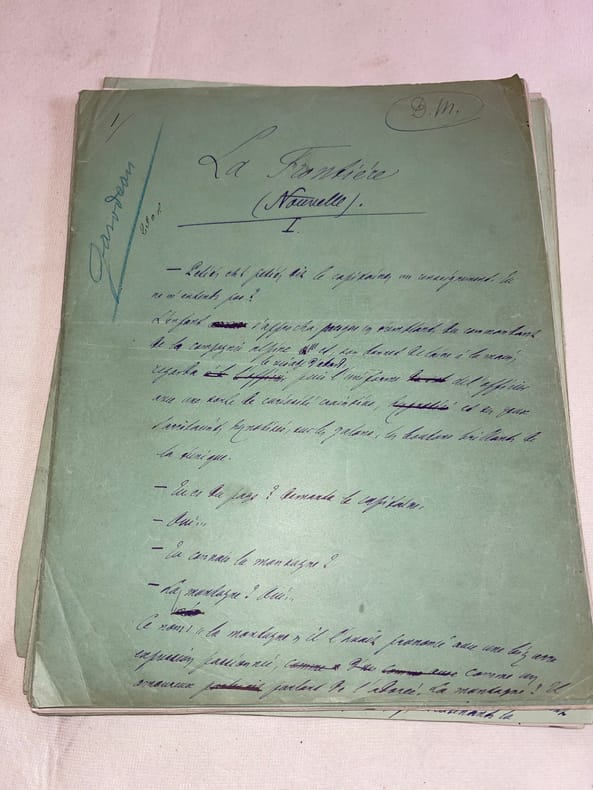 1
D. M.
La Frontière
(Nouvelle).
I.
— Petit, eh! petit, dit le capitaine, un renseignement. Tu
ne m'entends pas ?
L'enfant s'approcha presque en tremblant du commandant
de la compagnie alpine et, son béret de laine à la main,
le visage d'abord,
regarda puis l'uniforme de l'officier
avec une sorte de curiosité craintive, et ses yeux
s'arrêtaient, hypnotisés, sur les galons, les boutons brillants de
la tunique.
— Tu es du pays ? demanda le capitaine.
— Oui...
— Tu connais la montagne ?
— La montagne ? Oui...
Ce nom : « la montagne » il l'avait prononcé avec une bizarre
expression passionnée, comme un
amoureux parlant de l'aimée. La montagne ? Il